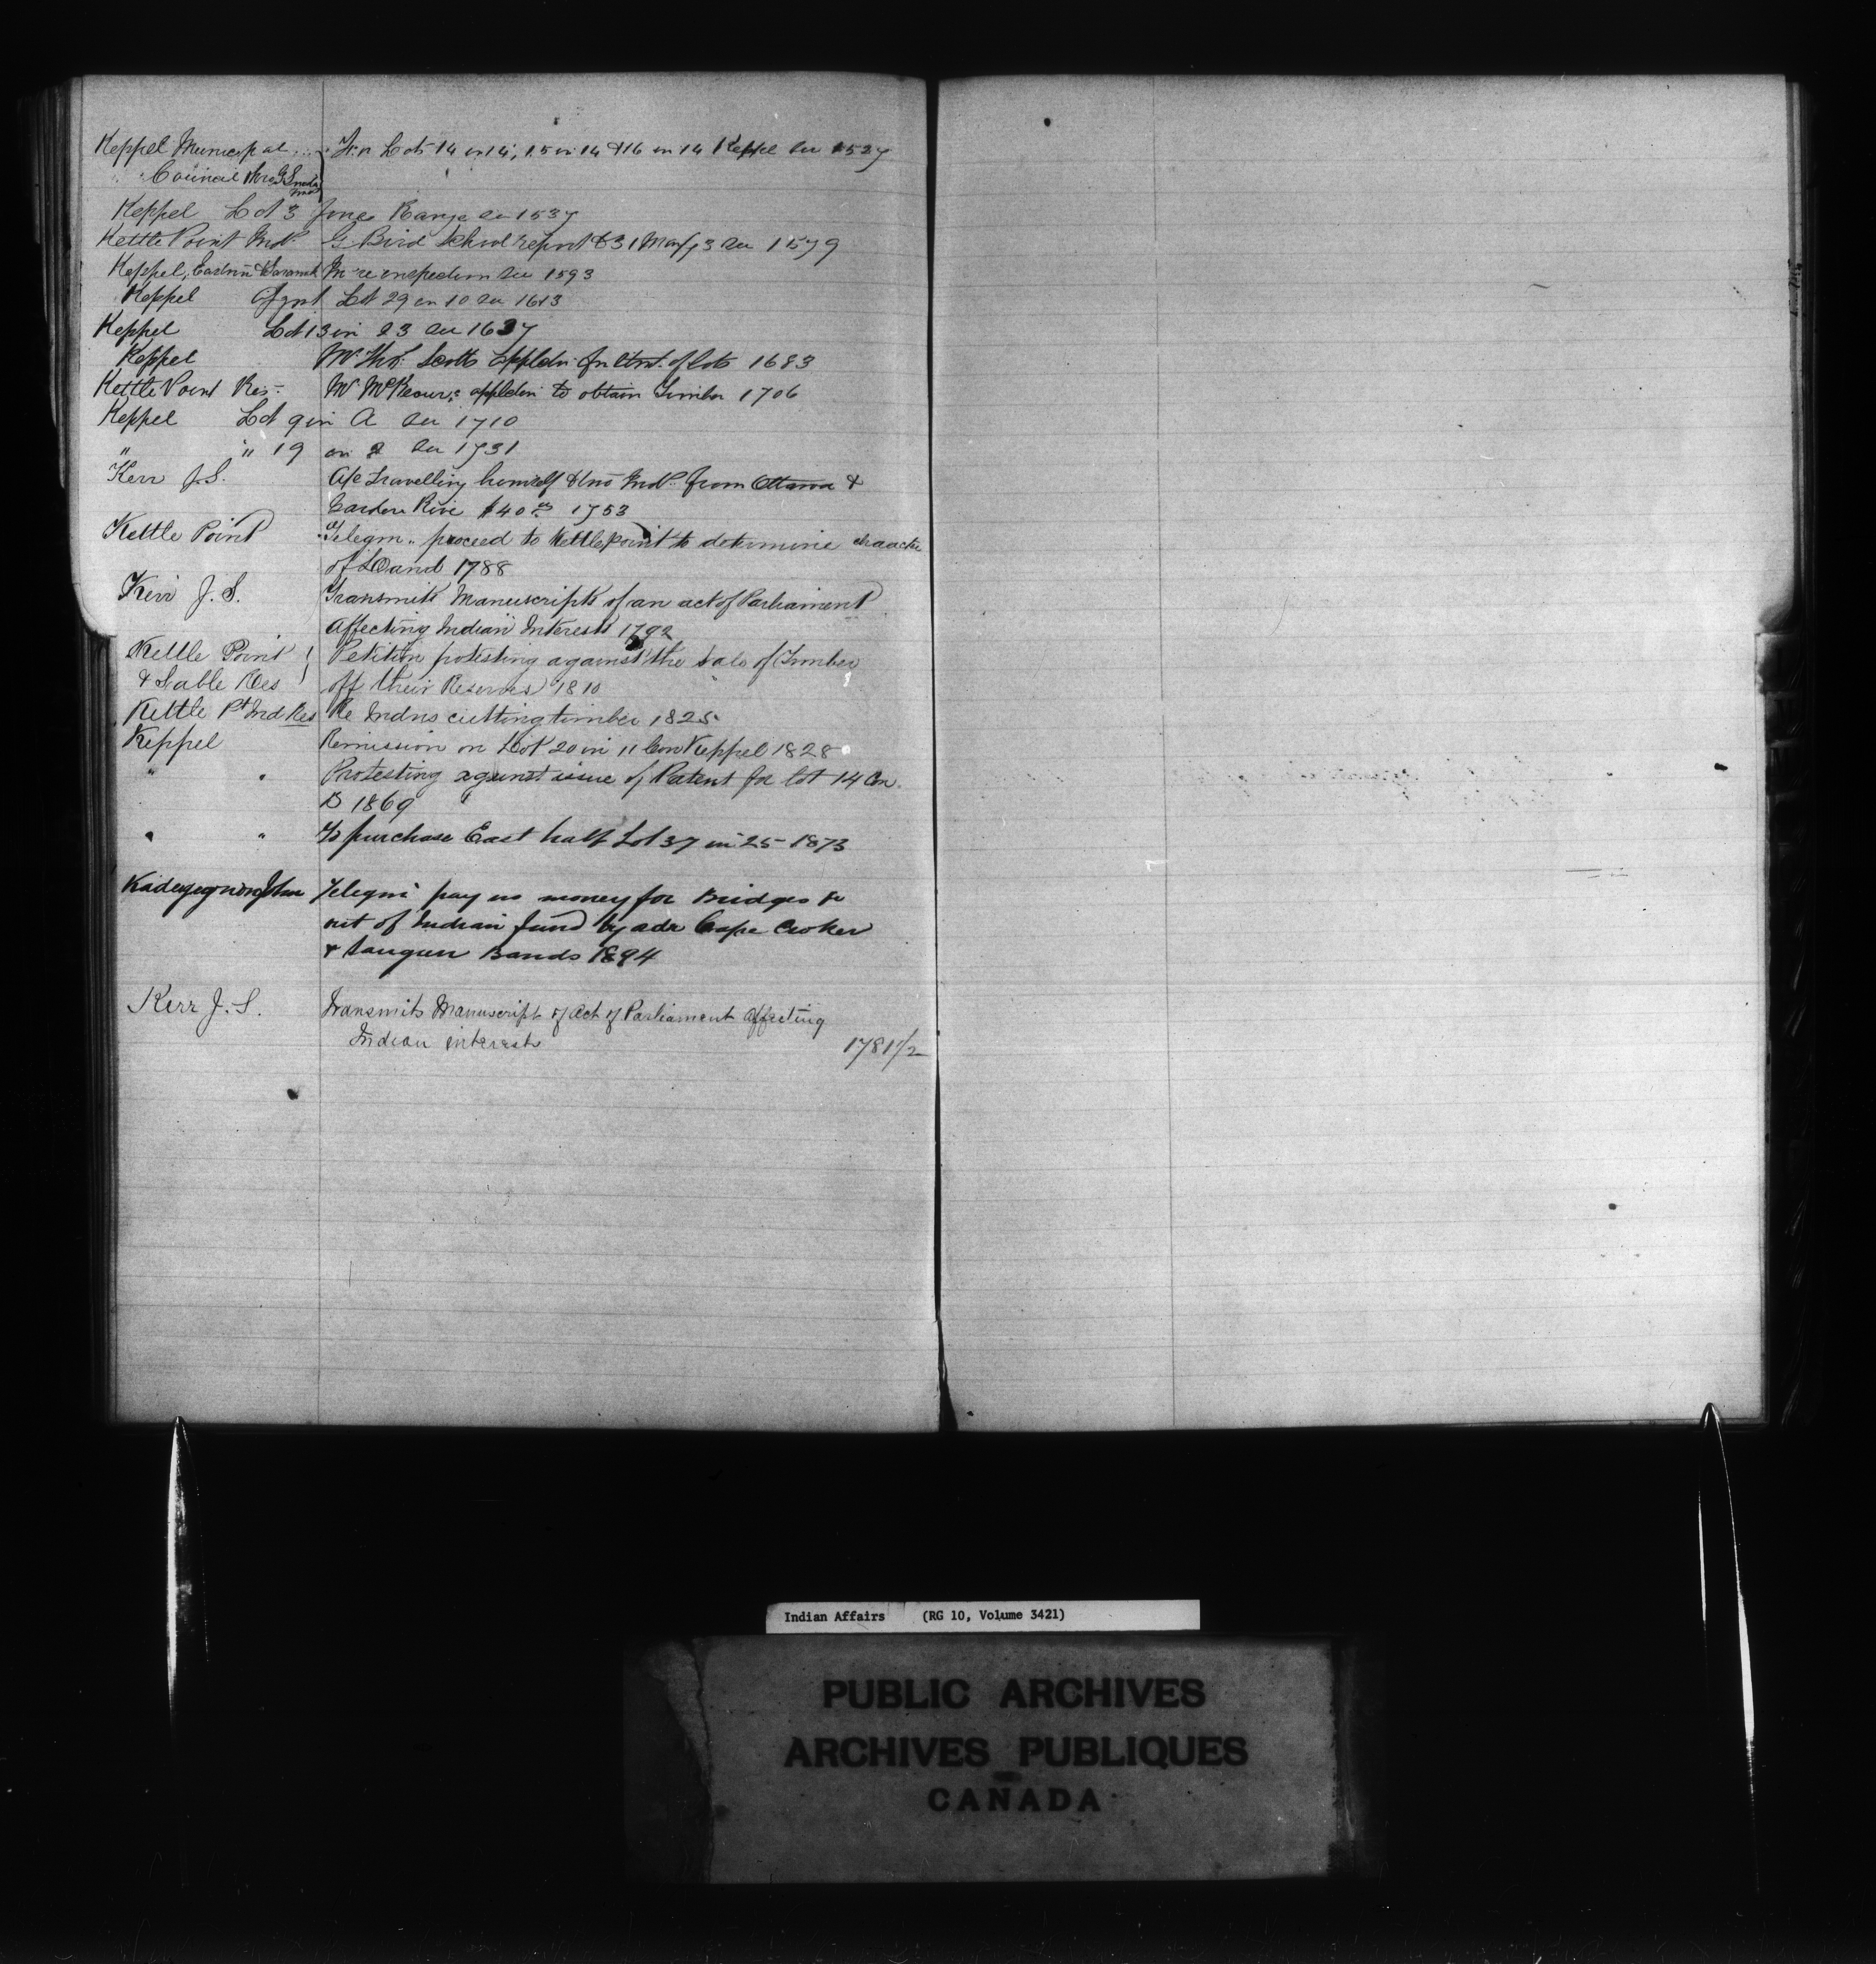 Keppel Municipal Lots 14 in 14, 15 in 14 & 16 in 14 Keppel See 1527
Council thro G S
Keppel Lot 3 Jones Range See 1537
Kettle Point Inds G Bird School report 31 Mar/73 See 1579
Keppel, Eastnor & Sarawak In re inspection See 1593
Keppel Lot 29 in 10 See 1613
Keppel Lot 13 in 23 See 1637
Keppel Mr Thos. Scotts Appln for of lots 1683
Kettle Point Res. Mr applctn to obtain Timber 1706
Keppel Lot 9 in A See 1710
" " 19 in 2 See 1731
Kerr J. S. A/c travelling himself & two Inds from Ottawa &
Garden River $40 1753
Kettle Point Telegm. proceed to Kettle point to determine character
of Land 1788
Kerr J. S. Transmits Manuscripts of an act of Parliament
Affecting Indian Interests 1792
Kettle Point Petition protesting against the sale of Timber
& Sable Res off their Reserves 1810
Kettle Pt Ind Res Re Indns cutting timber 1825
Keppel Remission on Lot 20 in 11 Con Keppel 1828
" " Protesting against issue of Patent for lot 14 Con.
B 1869
" " To purchase East half Lot 37 in 25 1873
John Telegm pay no money for Bridges &c
out of Indian fund by ads Cape Croker
& Saugeen Bands 1894
Kerr J. S. Transmits Manuscript of Act of Parliament affecting
Indian interests 1781 1/2
Indian Affairs (RG 10, Volume 3421)
PUBLIC ARCHIVES
ARCHIVES PUBLIQUES
CANADA